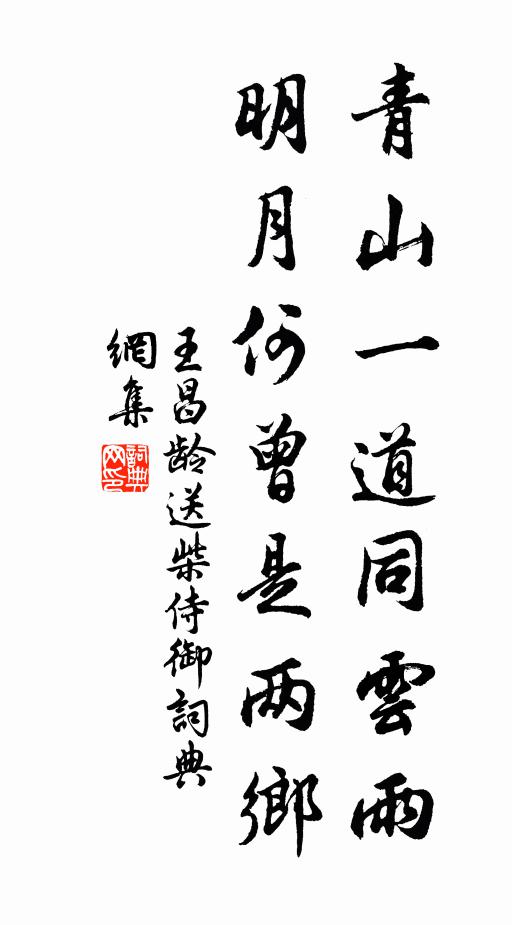 青山一道同雲雨
明月何曾是两鄉
王昌龄送柴侍御詞典
網集
詞典网印